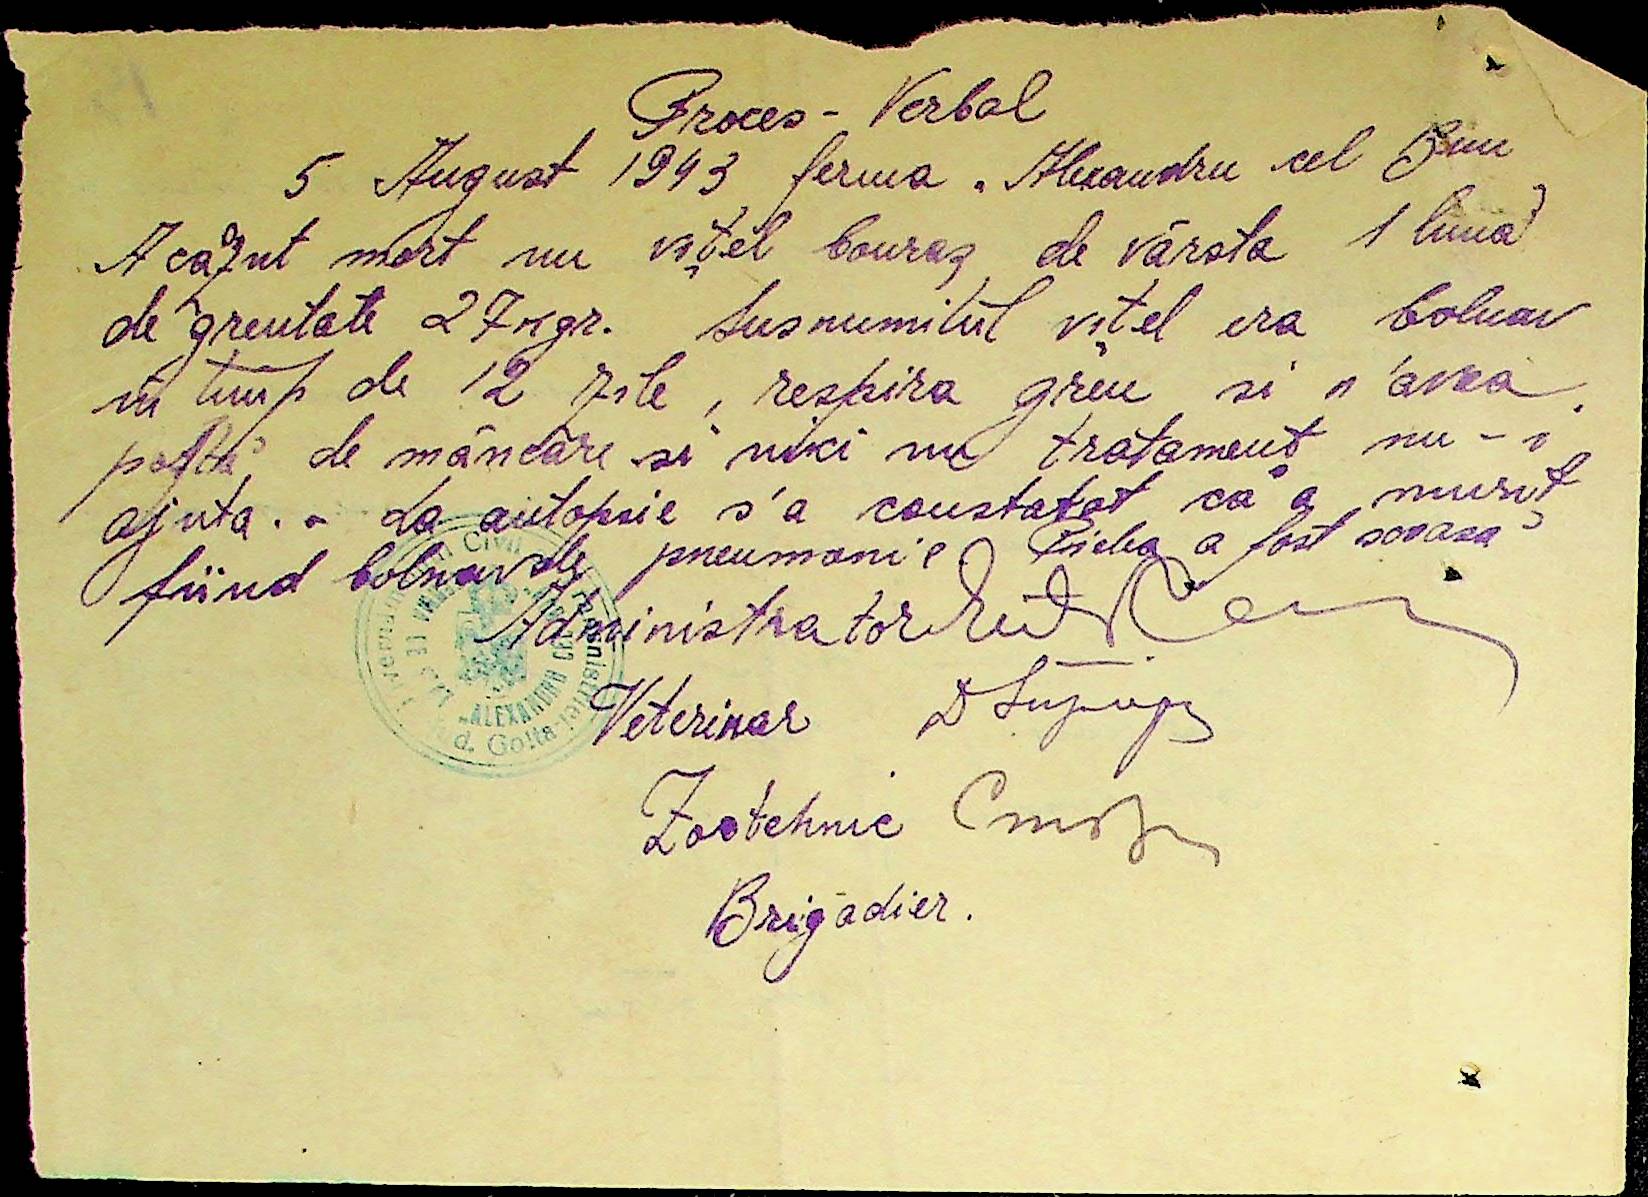 Proces - Verbal
5 August 1943 ferma „Alexandru cel Bun
A căzut mort un vițel bouraș de vârsta 1 lună
de greutate 27 kgr. Susnumitul vițel era bolnav
în timp de 12 zile, respira greu si n'avea
poftă de mâncare si nici un tratament nu-i
ajuta. - La autopsie s'a constatat că a murit
fiind bolnav de pneumonie. Pielea a fost scoasă
Administrator
Veterinar
Zootehnic
Brigadier.
Civil
"ALEXANDRU CEL
d. Golta